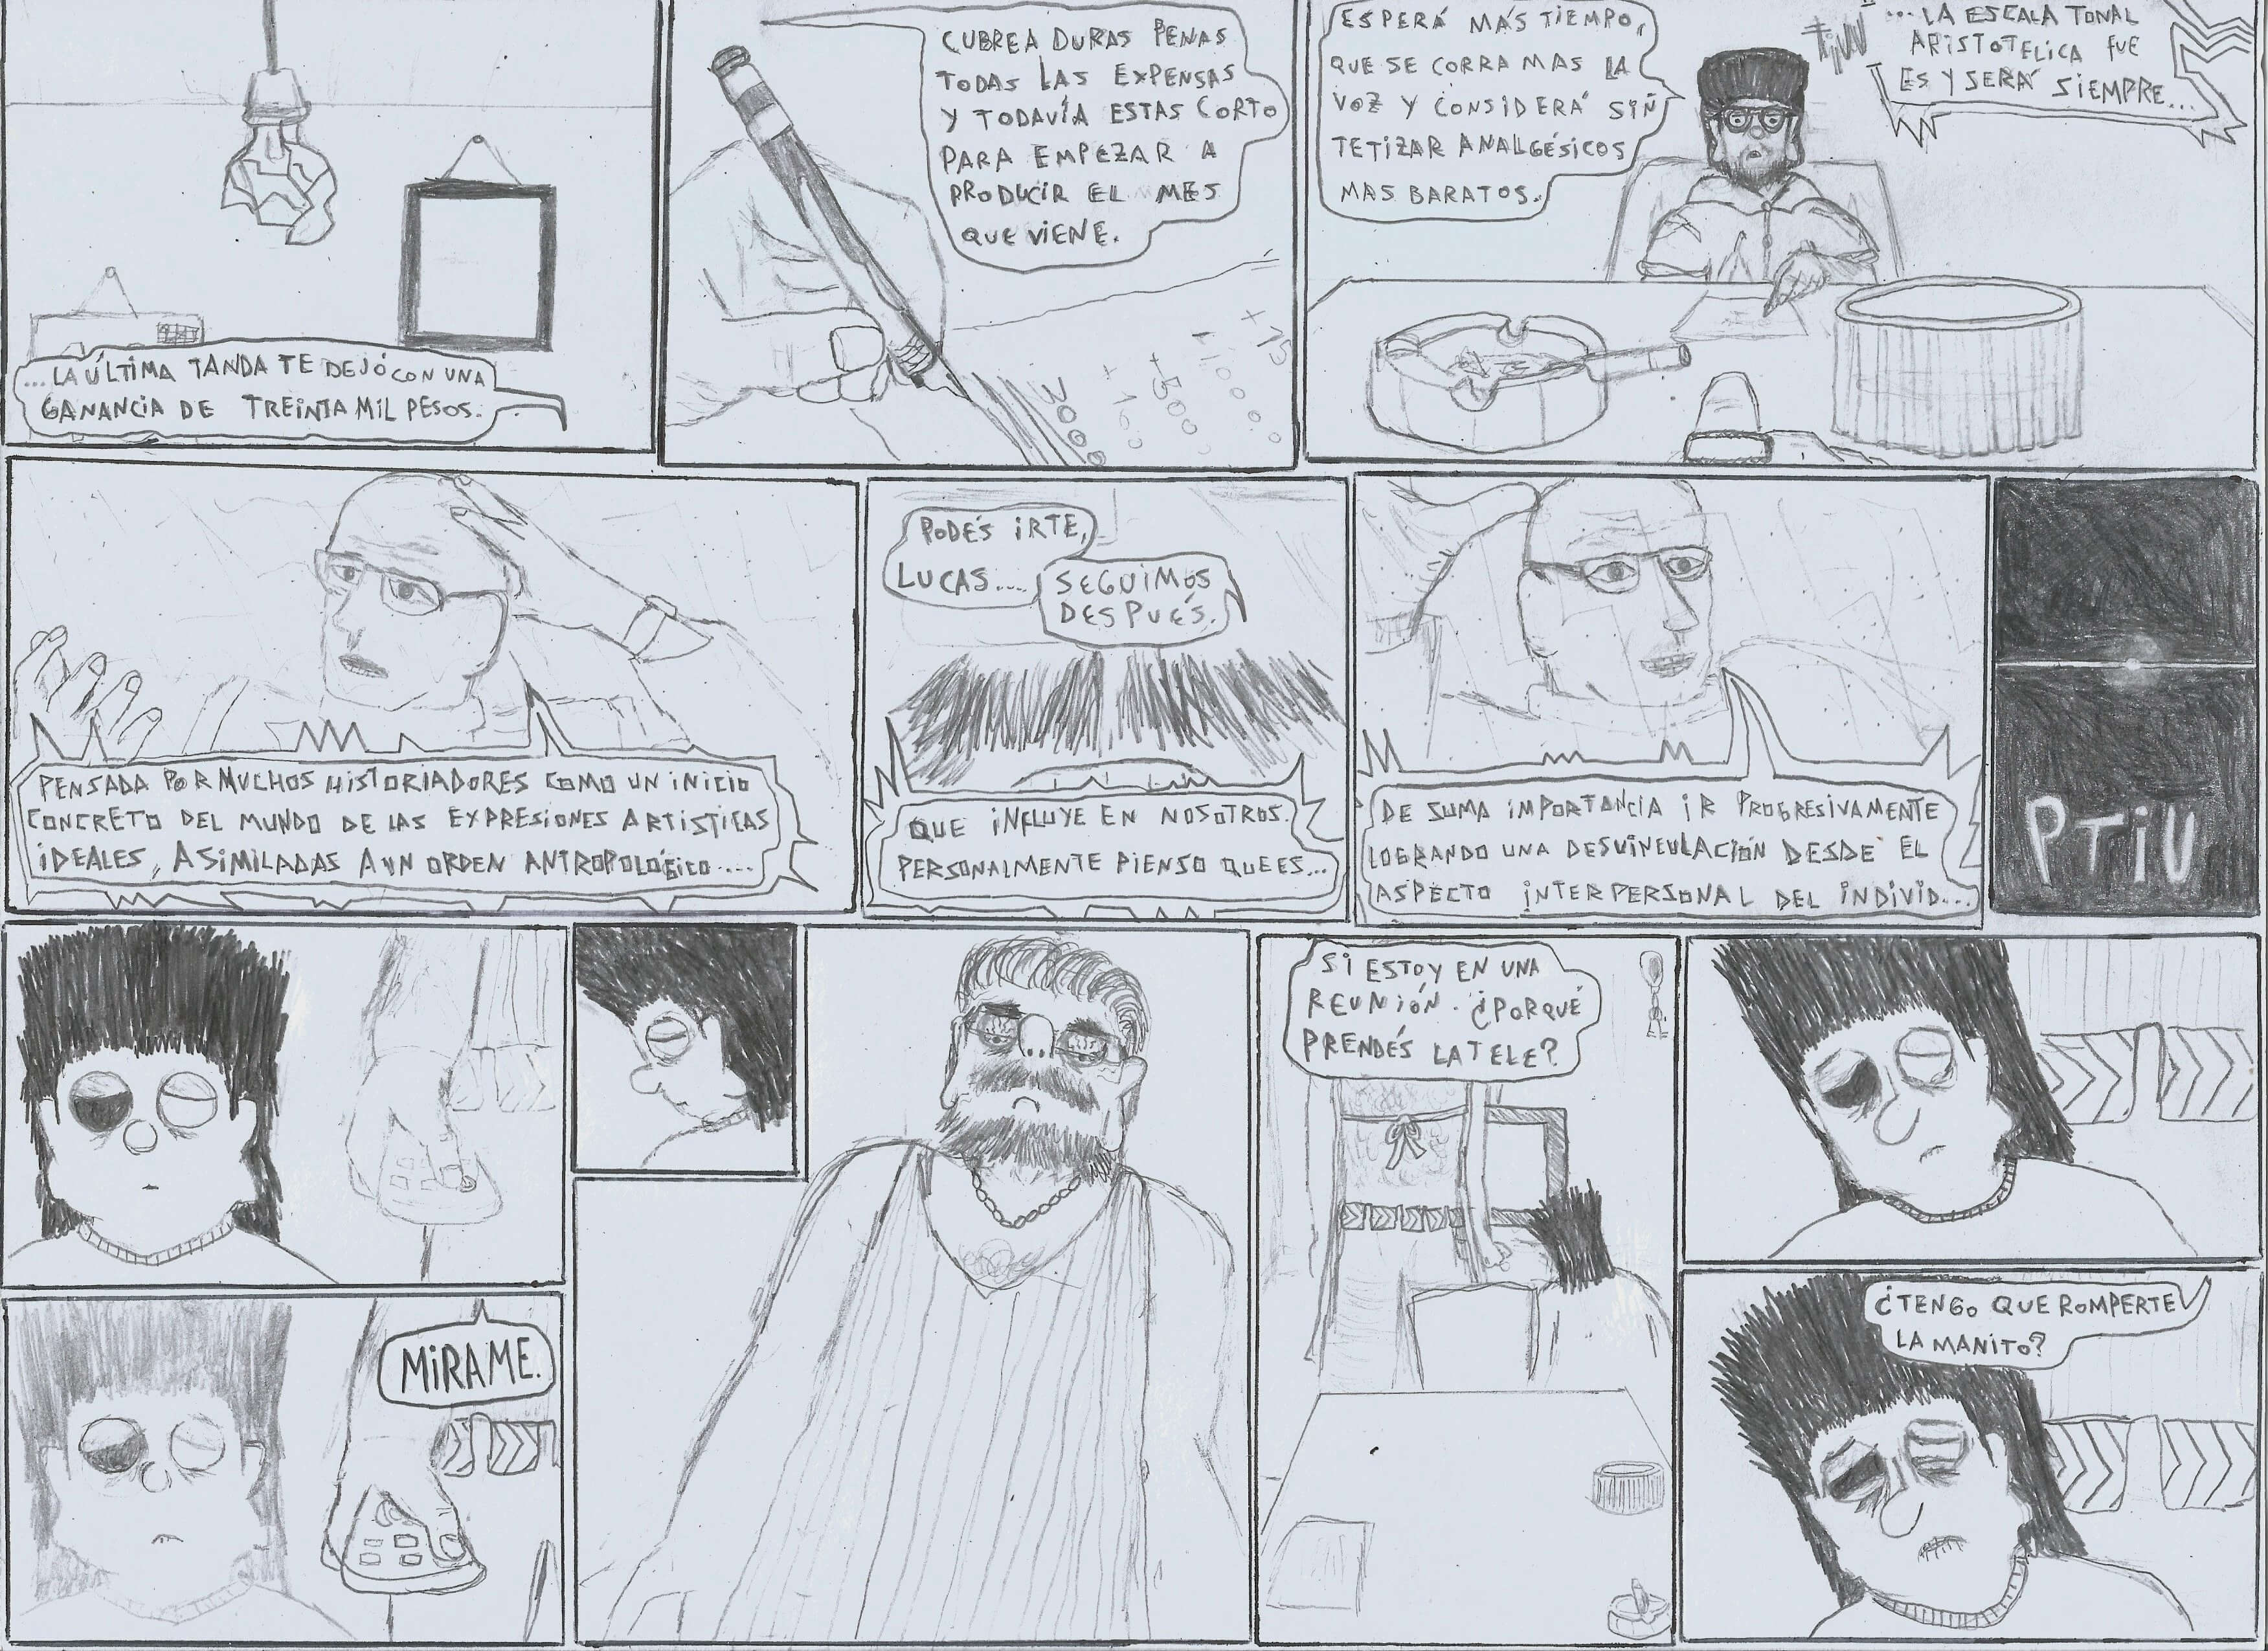 ...LA ÚLTIMA TANDA TE DEJÓ CON UNA
GANANCIA DE TREINTA MIL PESOS.
CUBRE A DURAS PENAS
TODAS LAS EXPENSAS
Y TODAVÍA ESTAS CORTO
PARA EMPEZAR A
PRODUCIR EL MES
QUE VIENE.
3000
+100
+500
+10000
+15
ESPERÁ MÁS TIEMPO,
QUE SE CORRA MAS LA
VOZ Y CONSIDERÁ SIN
TETIZAR ANALGÉSICOS
MAS BARATOS.
...LA ESCALA TONAL
ARISTOTELICA FUE
ES Y SERÁ SIEMPRE...
PENSADA POR MUCHOS HISTORIADORES COMO UN INICIO
CONCRETO DEL MUNDO DE LAS EXPRESIONES ARTISTICAS
IDEALES, ASIMILADAS A UN ORDEN ANTROPOLÓGICO....
PODÉS IRTE,
LUCAS....
SEGUIMOS
DESPUÉS.
QUE INFLUYE EN NOSOTROS.
PERSONALMENTE PIENSO QUE ES...
DE SUMA IMPORTANCIA IR PROGRESIVAMENTE
LOGRANDO UNA DESVINCULACIÓN DESDE EL
ASPECTO INTERPERSONAL DEL INDIVID...
PTIU
MIRAME.
SI ESTOY EN UNA
REUNIÓN. ¿PORQUÉ
PRENDÉS LA TELE?
¿TENGO QUE ROMPERTE
LA MANITO?